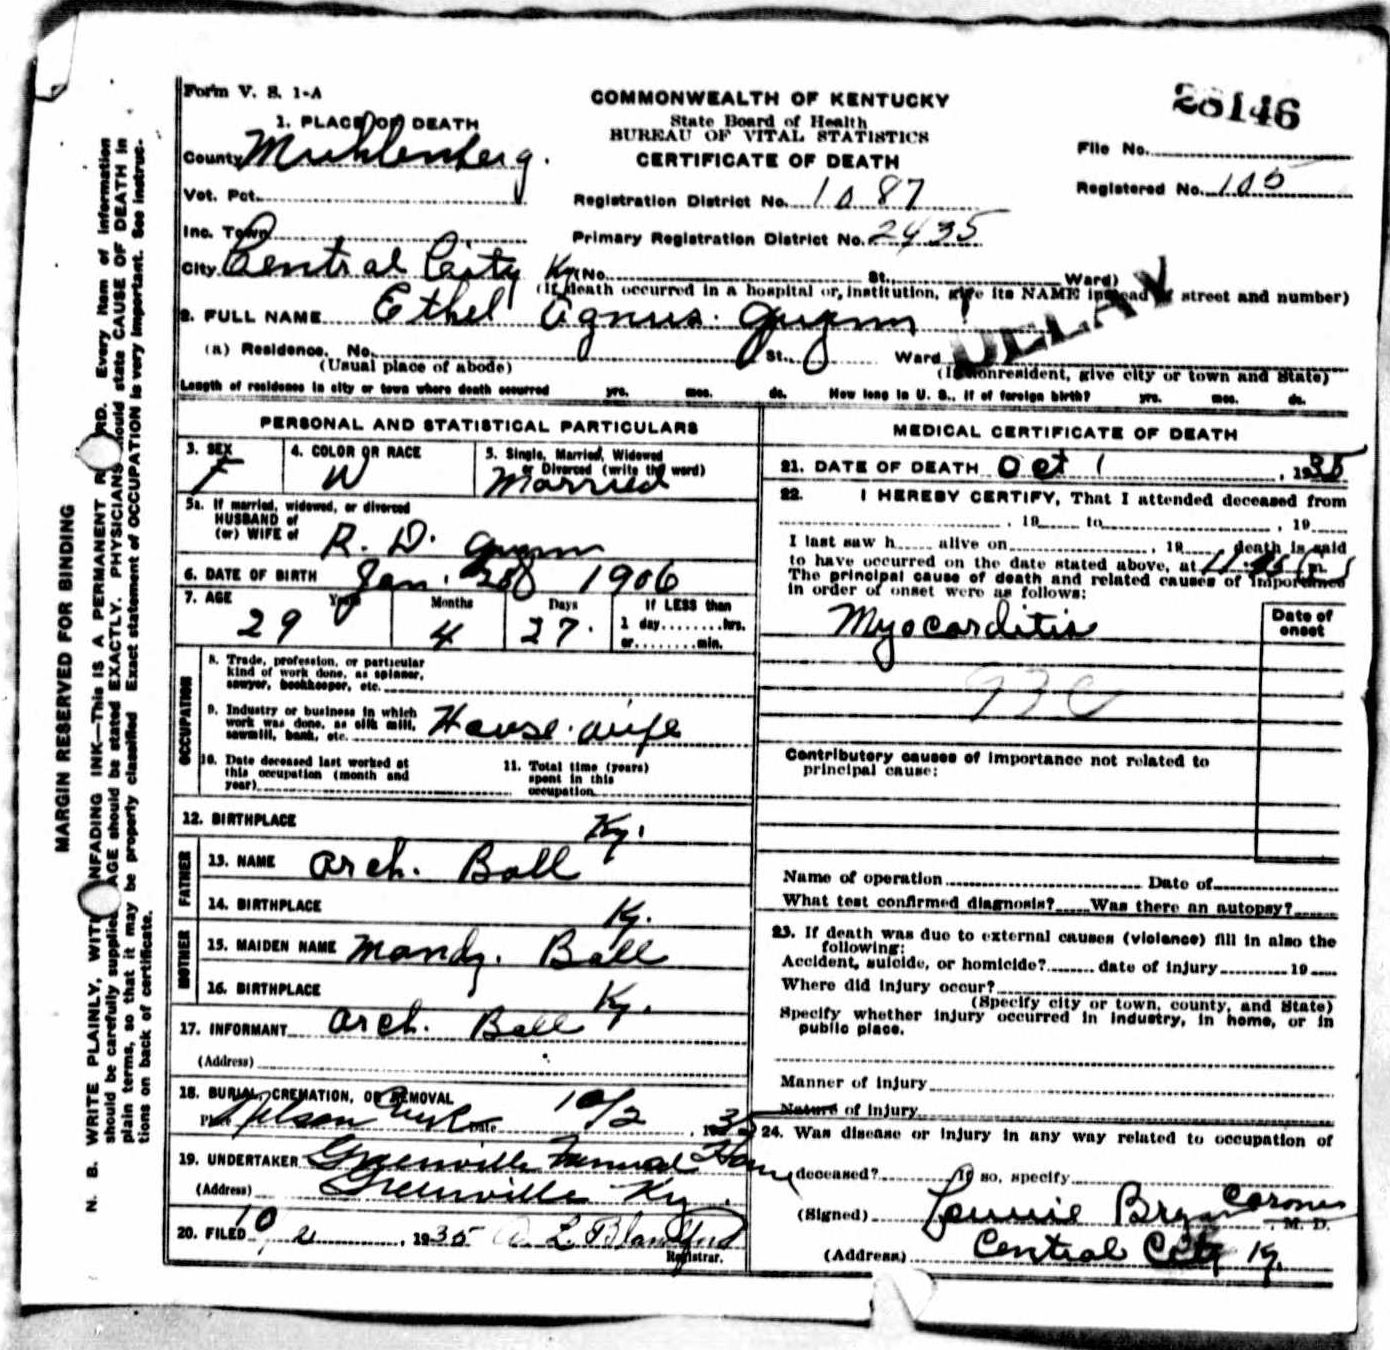 Form V. S. 1-A
COMMONWEALTH OF KENTUCKY
State Board of Health
BUREAU OF VITAL STATISTICS
CERTIFICATE OF DEATH
28146
File No.
Registered No. 105
1. PLACE OF DEATH
County Muhlenberg.
Vot. Pct.
Registration District No. 1087
Inc. Town
Primary Registration District No. 2435
City Central City Ky (No. St., Ward)
(If death occurred in a hospital or institution, give its NAME instead of street and number)
2. FULL NAME Ethel Agnus
DELAY
(a) Residence. No. St., Ward
(Usual place of abode)
(If nonresident, give city or town and State)
Length of residence in city or town where death occurred yrs. mos. ds. How long in U. S., if of foreign birth? yrs. mos. ds.
PERSONAL AND STATISTICAL PARTICULARS
3. SEX
F
4. COLOR OR RACE
W
5. Single, Married, Widowed
or Divorced (write the word)
Married
5a. If married, widowed, or divorced
HUSBAND of
(or) WIFE of R. D.
6. DATE OF BIRTH Jan. 28 1906
7. AGE Years Months Days
29 4 27.
If LESS than
1 day........hrs.
or........min.
OCCUPATION
8. Trade, profession, or particular
kind of work done, as spinner,
sawyer, bookkeeper, etc.
9. Industry or business in which
work was done, as silk mill,
sawmill, bank, etc. House wife
10. Date deceased last worked at
this occupation (month and
year)
11. Total time (years)
spent in this
occupation
12. BIRTHPLACE Ky.
FATHER
13. NAME Arch. Ball
14. BIRTHPLACE Ky.
MOTHER
15. MAIDEN NAME Mandy. Ball
16. BIRTHPLACE Ky.
17. INFORMANT Arch. Ball
(Address)
18. BURIAL, CREMATION, OR REMOVAL
Place Nelson Creek Date 10/2, 1935
19. UNDERTAKER Greenville Funeral Home
(Address) Greenville Ky.
20. FILED 10, 1935 L. Blandford
Registrar.
MEDICAL CERTIFICATE OF DEATH
21. DATE OF DEATH Oct 1, 1935
22. I HEREBY CERTIFY, That I attended deceased from
, 19 to , 19
I last saw h alive on , 19 death is said
to have occurred on the date stated above, at m.
The principal cause of death and related causes of importance
in order of onset were as follows:
Date of
onset
Myocarditis
93c
Contributory causes of importance not related to
principal cause:
Name of operation Date of
What test confirmed diagnosis? Was there an autopsy?
23. If death was due to external causes (violence) fill in also the
following:
Accident, suicide, or homicide? date of injury 19
Where did injury occur?
(Specify city or town, county, and State)
Specify whether injury occurred in industry, in home, or in
public place.
Manner of injury
Nature of injury
24. Was disease or injury in any way related to occupation of
deceased? If so, specify
(Signed) Coroner, M. D.
(Address) Central City Ky.
MARGIN RESERVED FOR BINDING
N. B. WRITE PLAINLY, WITH UNFADING INK—This IS A PERMANENT RECORD. Every item of information
should be carefully supplied. AGE should be stated EXACTLY. PHYSICIANS should state CAUSE OF DEATH in
plain terms, so that it may be properly classified. Exact statement of OCCUPATION is very important. See instruc-
tions on back of certificate.